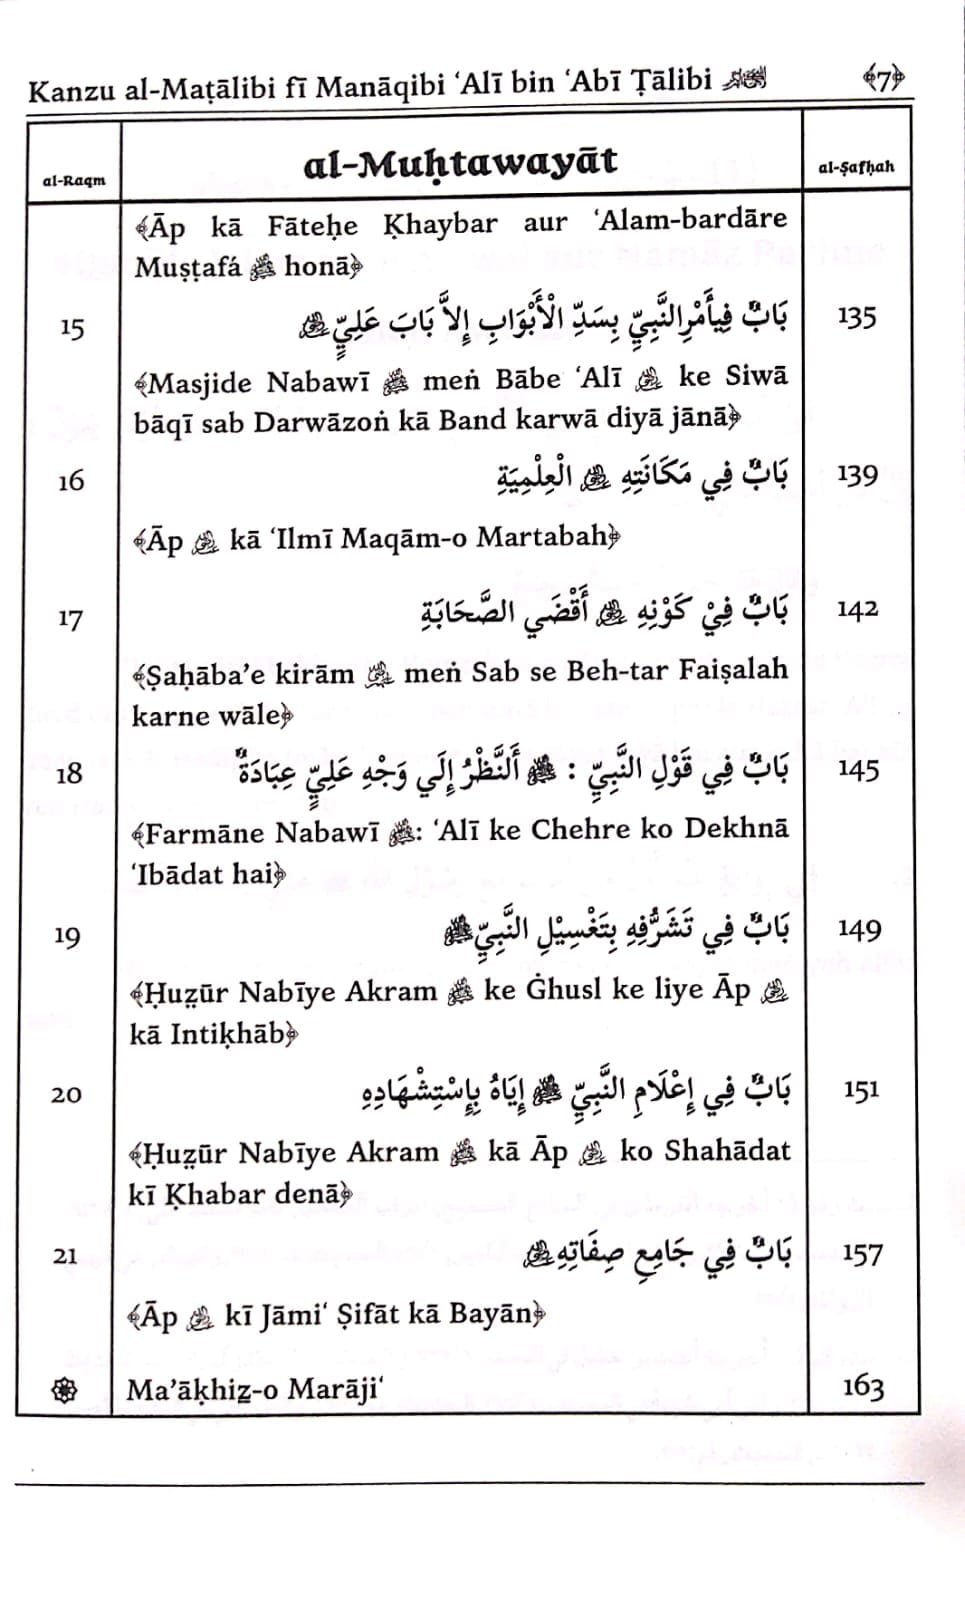 Kanzu al-Maṭālibi fī Manāqibi ‘Alī bin ‘Abī Ṭālibi ﴾7﴿
al-Raqm al-Muḥtawayāt al-Ṣafḥah
﴾Āp kā Fāteḥe Ḳhaybar aur ‘Alam-bardāre
Muṣṭafá ﷺ honā﴿
15 بَابٌ فِيأَمْرِالنَّبِيِّ بِسَدِّ الْأَبْوَابِ إِلاَّ بَابَ عَلِيٍّ 135
﴾Masjide Nabawī ﷺ meṅ Bābe ‘Alī ke Siwā
bāqī sab Darwāzoṅ kā Band karwā diyā jānā﴿
16 بَابٌ فِي مَكَانَتِهِ الْعِلْمِيَةِ 139
﴾Āp kā ‘Ilmī Maqām-o Martabah﴿
17 بَابٌ فِيْ كَوْنِهِ أَقْضَي الصَّحَابَةِ 142
﴾Ṣaḥāba’e kirām meṅ Sab se Beh-tar Faiṣalah
karne wāle﴿
18 بَابٌ فِي قَوْلِ النَّبِيِّ : ﷺ أَلنَّظْرُ إِلَي وَجْهِ عَلِيٍّ عِبَادَةٌ 145
﴾Farmāne Nabawī ﷺ: ‘Alī ke Chehre ko Dekhnā
‘Ibādat hai﴿
19 بَابٌ فِي تَشَرُّفِهِ بِتَغْسِيْلِ النَّبِيِّ ﷺ 149
﴾Ḥuz̤ūr Nabīye Akram ﷺ ke Ġhusl ke liye Āp
kā Intiḳhāb﴿
20 بَابٌ فِي إِعْلَامِ النَّبِيِّ ﷺ إِيَاهُ بِإِسْتِشْهَادِهِ 151
﴾Ḥuz̤ūr Nabīye Akram ﷺ kā Āp ko Shahādat
kī Ḳhabar denā﴿
21 بَابٌ فِي جَامِعِ صِفَاتِهِ 157
﴾Āp kī Jāmi‘ Ṣifāt kā Bayān﴿
Ma’āḳhiz̲-o Marāji‘ 163